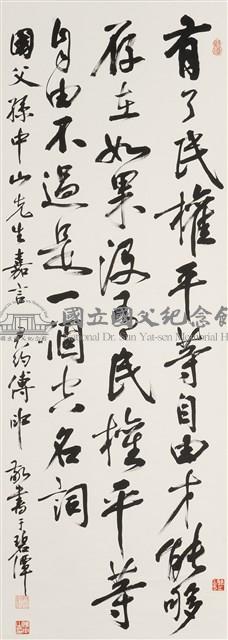 有了民權平等自由才能夠
存在如果沒有民權平等
自由不過是一個空名詞
國父孫中山先生嘉言
敬書于碧潭
國立國父紀念館
National Dr. Sun Yat-sen Memorial Hall